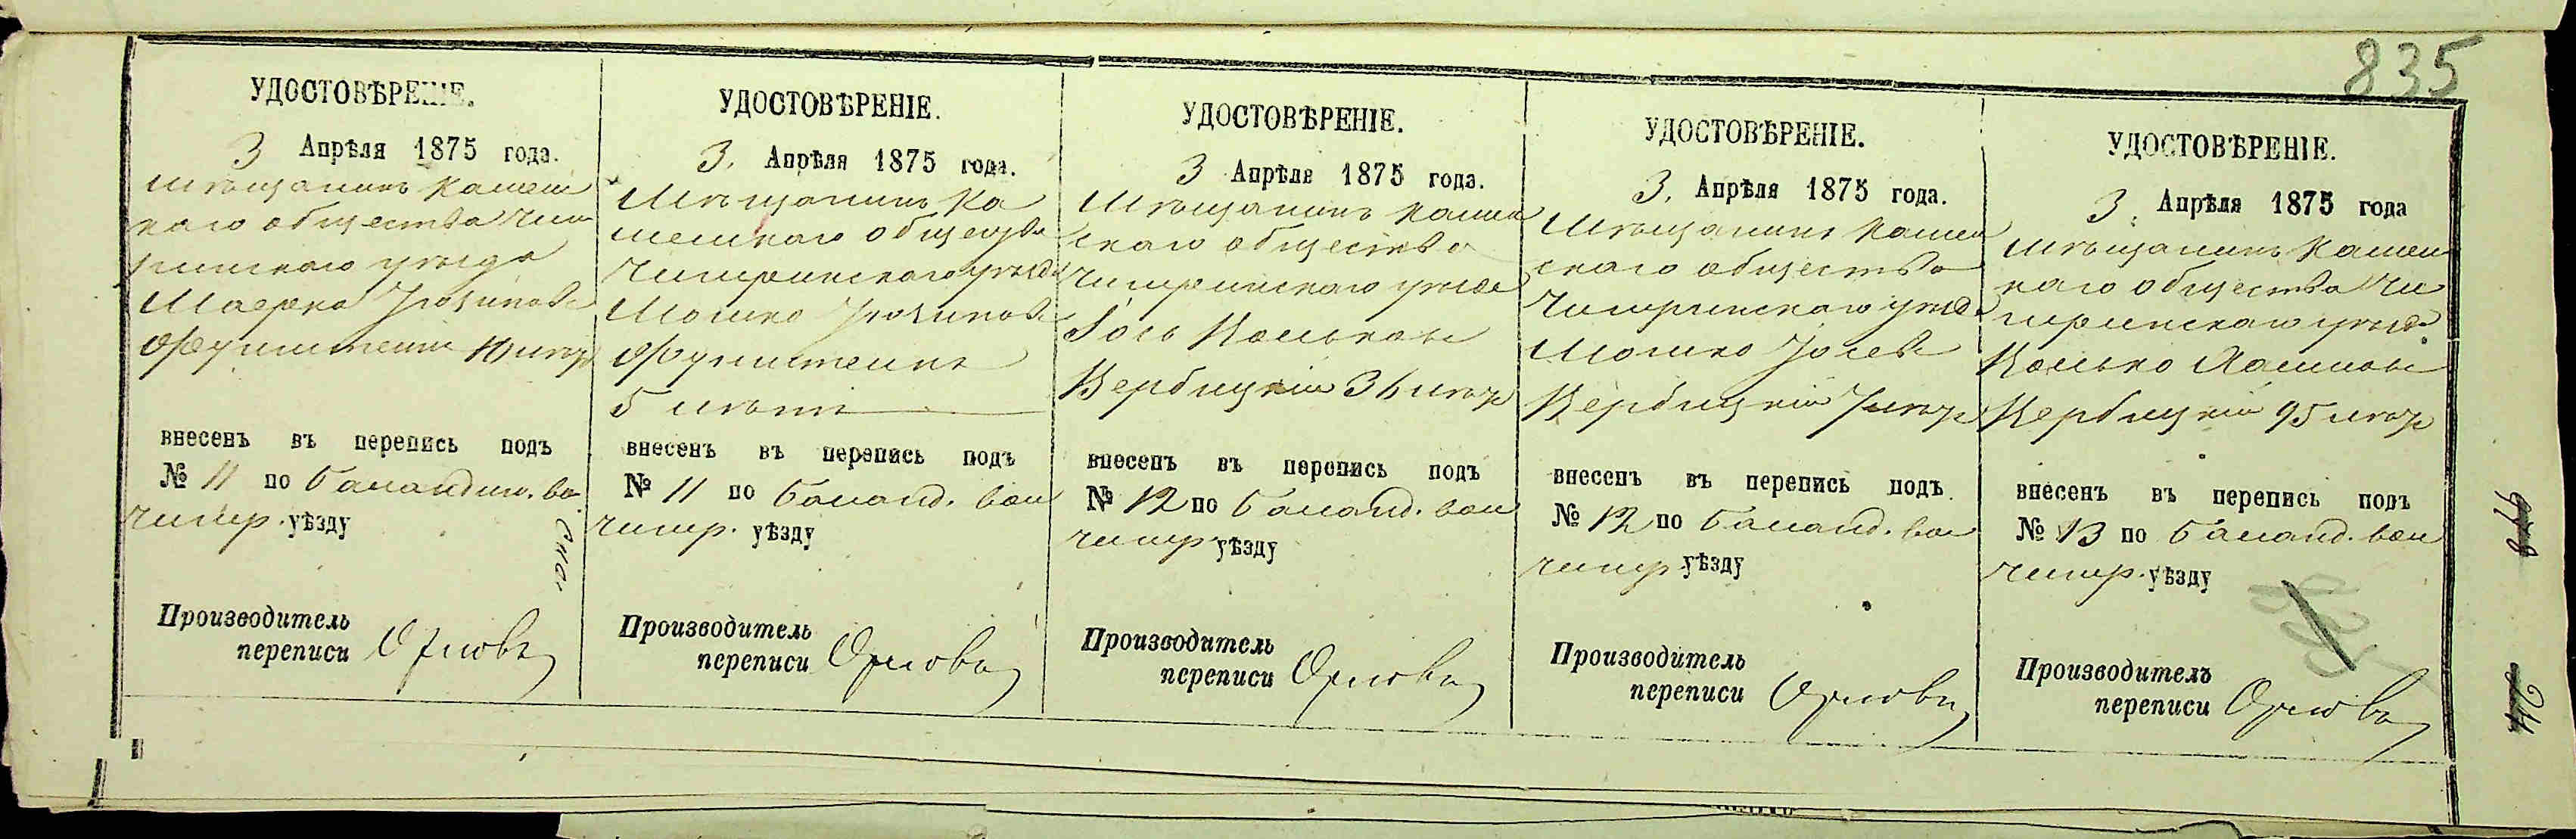 835
УДОСТОВѢРЕНІЕ.
3 Апрѣля 1875 года.
Мѣщанинъ Камен
каго общества Чиги
ринскаго уѣзда
Маерко Іосиповъ
Фурштеинъ 10 лѣтъ
внесенъ въ перепись подъ
№ 11 по Баландин. во.
чигир. уѣзду
Производитель
переписи Орловъ
УДОСТОВѢРЕНІЕ.
3. Апрѣля 1875 года.
Мѣщанинъ Ка
менскаго общества
Чигиринскаго уѣзда
Мошко Іосиповъ
Фурштеинъ
5 лѣтъ
внесенъ въ перепись подъ
№ 11 по Баланд. вол
чигир. уѣзду
Производитель
переписи Орловъ
УДОСТОВѢРЕНІЕ.
3 Апрѣля 1875 года.
Мѣщанинъ Камен
скаго общества
Чигиринскаго уѣзда
Іось Кельковъ
Вербицкій 36 лѣтъ
внесенъ въ перепись подъ
№ 12 по Баланд. вол
чигир уѣзду
Производитель
переписи Орловъ
УДОСТОВѢРЕНІЕ.
3. Апрѣля 1875 года.
Мѣщанинъ Камен
скаго общества
Чигиринскаго уѣзд.
Мошко Іосевъ
Вербицкій 7 лѣтъ
внесенъ въ перепись подъ
№ 12 по Баланд. вол
чигир уѣзду
Производитель
переписи Орловъ
УДОСТОВѢРЕНІЕ.
3. Апрѣля 1875 года
Мѣщанинъ Камен
каго общества Чи
гиринскаго уѣзда
Вербицкій
внесенъ въ перепись подъ
№ 13 по Баланд. вол
чигир. уѣзду
Производитель
переписи Орловъ